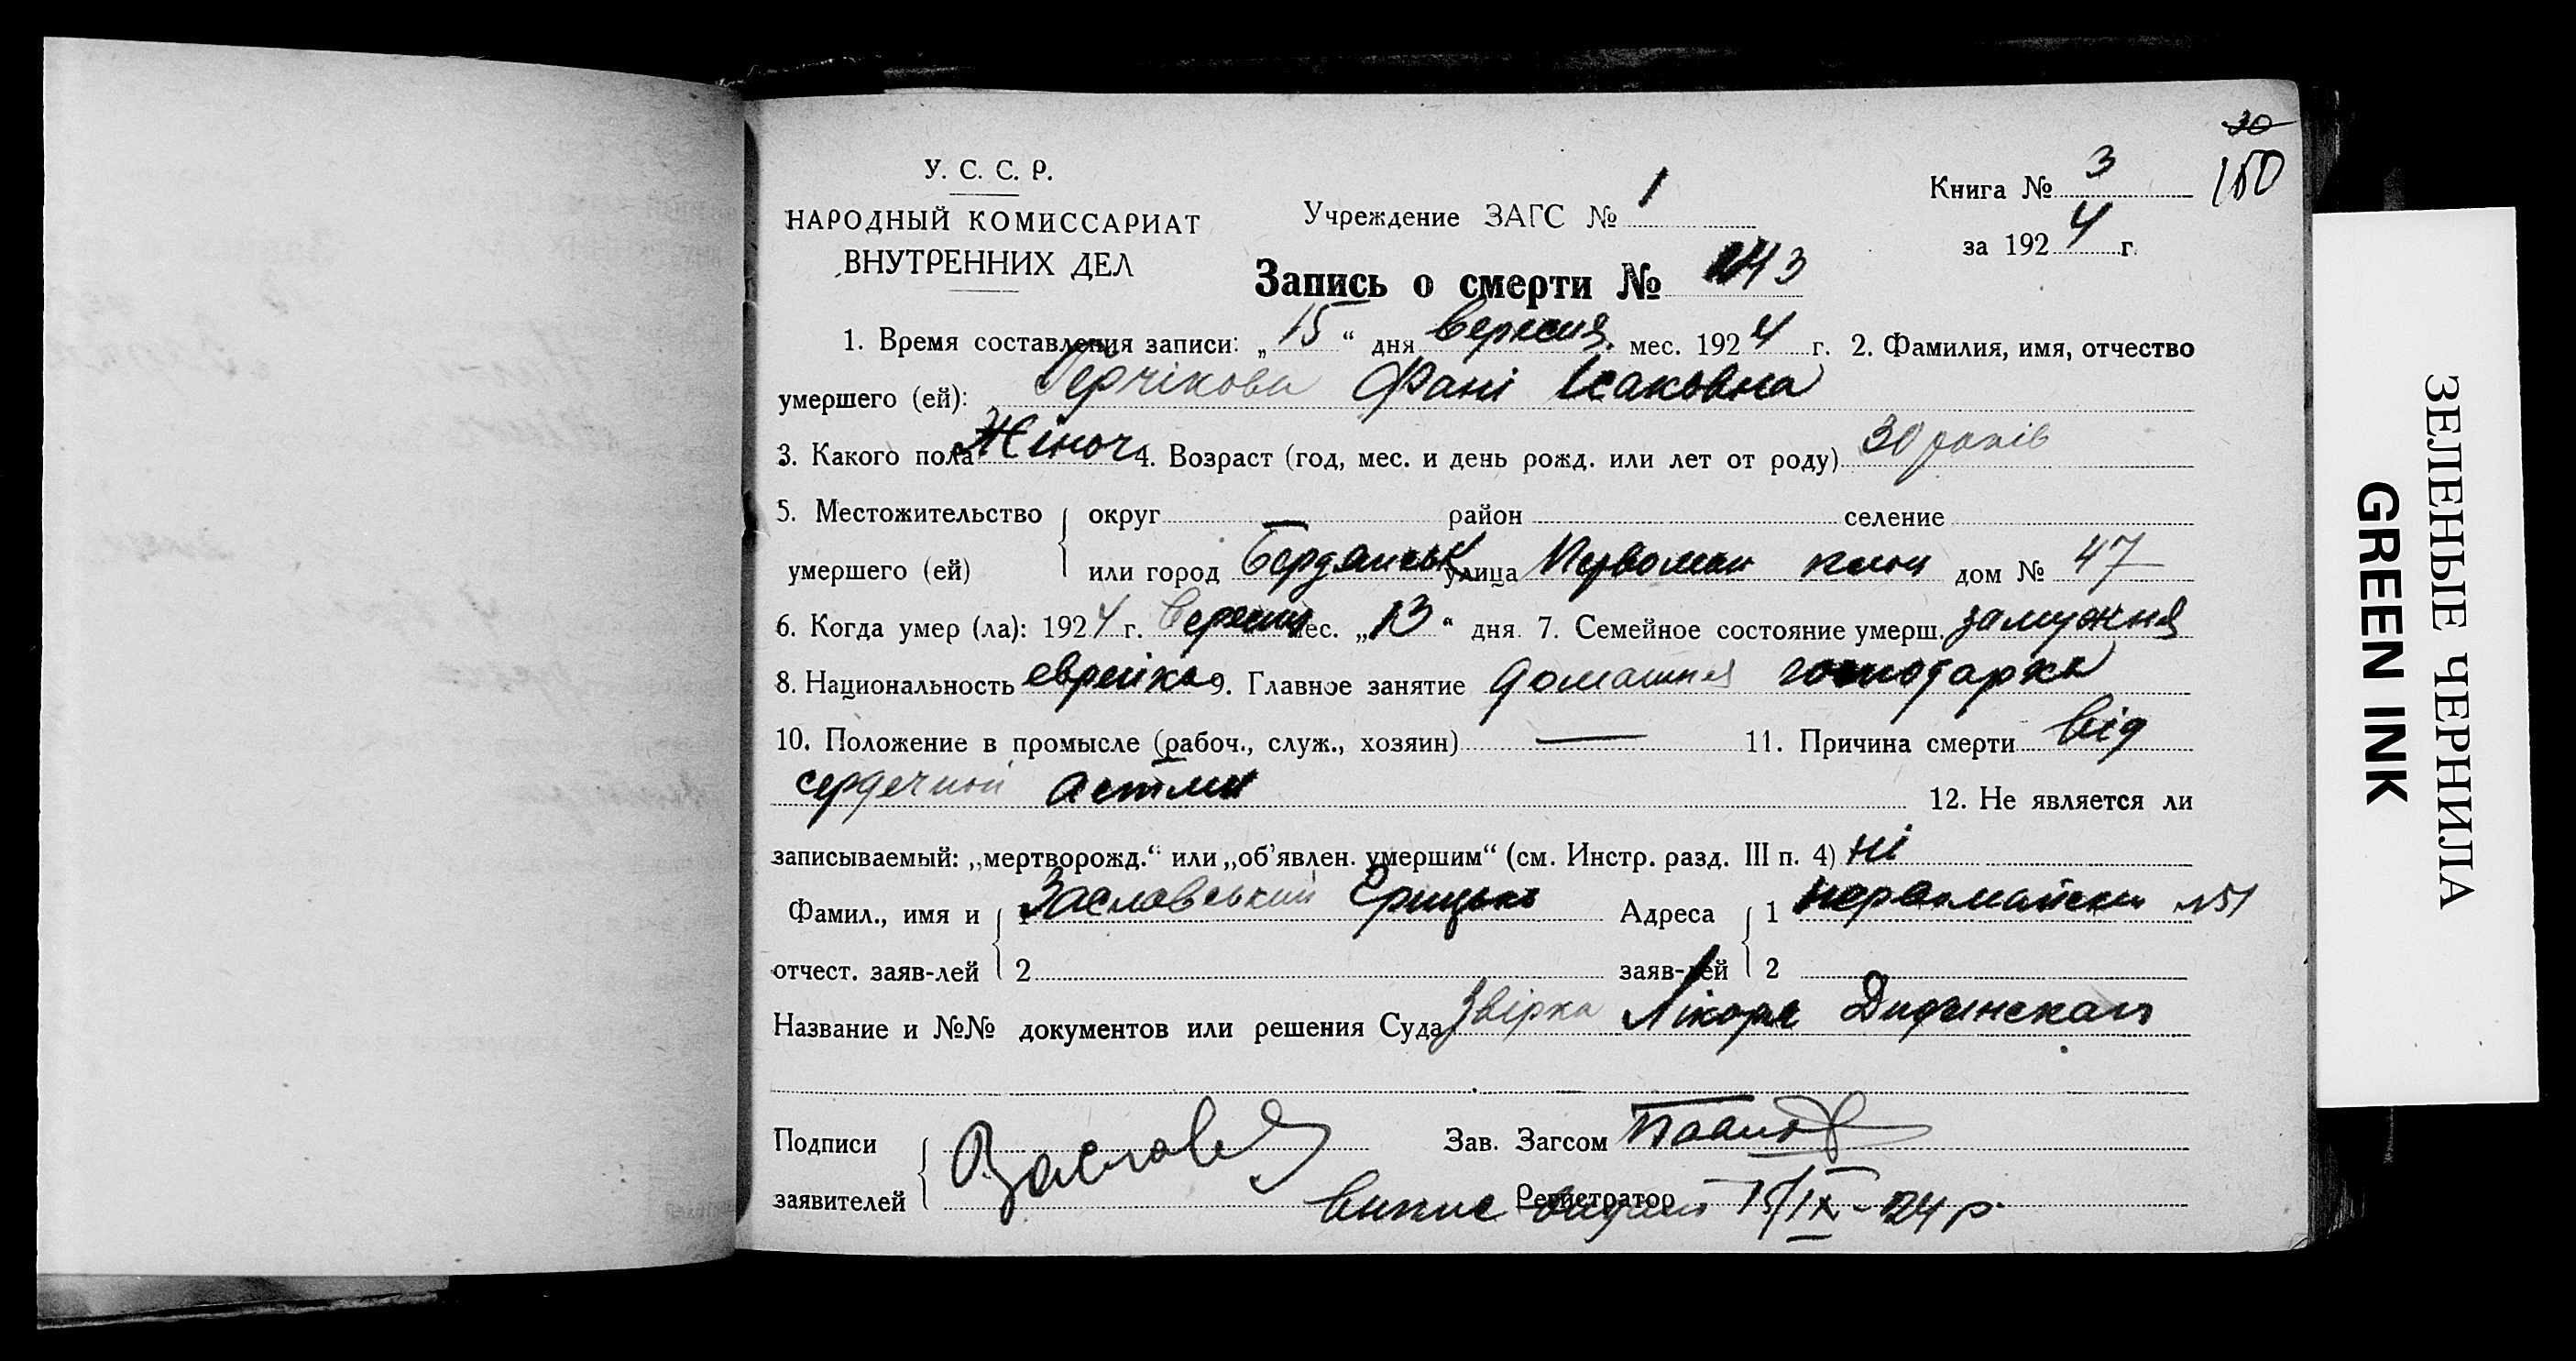 30
150
У. С. С. Р.
НАРОДНЫЙ КОМИССАРИАТ
ВНУТРЕННИХ ДЕЛ
Учреждение ЗАГС № 1
Книга № 3
за 1924 г.
Запись о смерти № 243
1. Время составления записи: „15“ дня вересня мес. 1924 г. 2. Фамилия, имя, отчество
умершего (ей): Герчікова Фані Ісаковна
3. Какого пола Жіноч 4. Возраст (год, мес. и день рожд. или лет от роду) 30 років
5. Местожительство округ — район селение
умершего (ей) или город Бердянськ улица Первомай дом № 47
6. Когда умер (ла): 1924 г. Вересня мес. „13“ дня 7. Семейное состояние умерш. замужня
8. Национальность еврейка 9. Главное занятие домашня господарка
10. Положение в промысле (рабоч., служ., хозяин) — 11. Причина смерти від
сердечной астми
12. Не является ли
записываемый: „мертворожд.“ или „об’явлен. умершим“ (см. Инстр. разд. III п. 4) ні
Фамил., имя и 1 Заславський Грицько Адреса 1 первомайски №51
отчест. заяв-лей 2 заяв-лей 2
Название и №№ документов или решения Суда Звірка Лікаря
Подписи Заслав Зав. Загсом
заявителей Регистратор
Випис видано 15/IX-24 р.
ЗЕЛЕНЫЕ ЧЕРНИЛА
GREEN INK